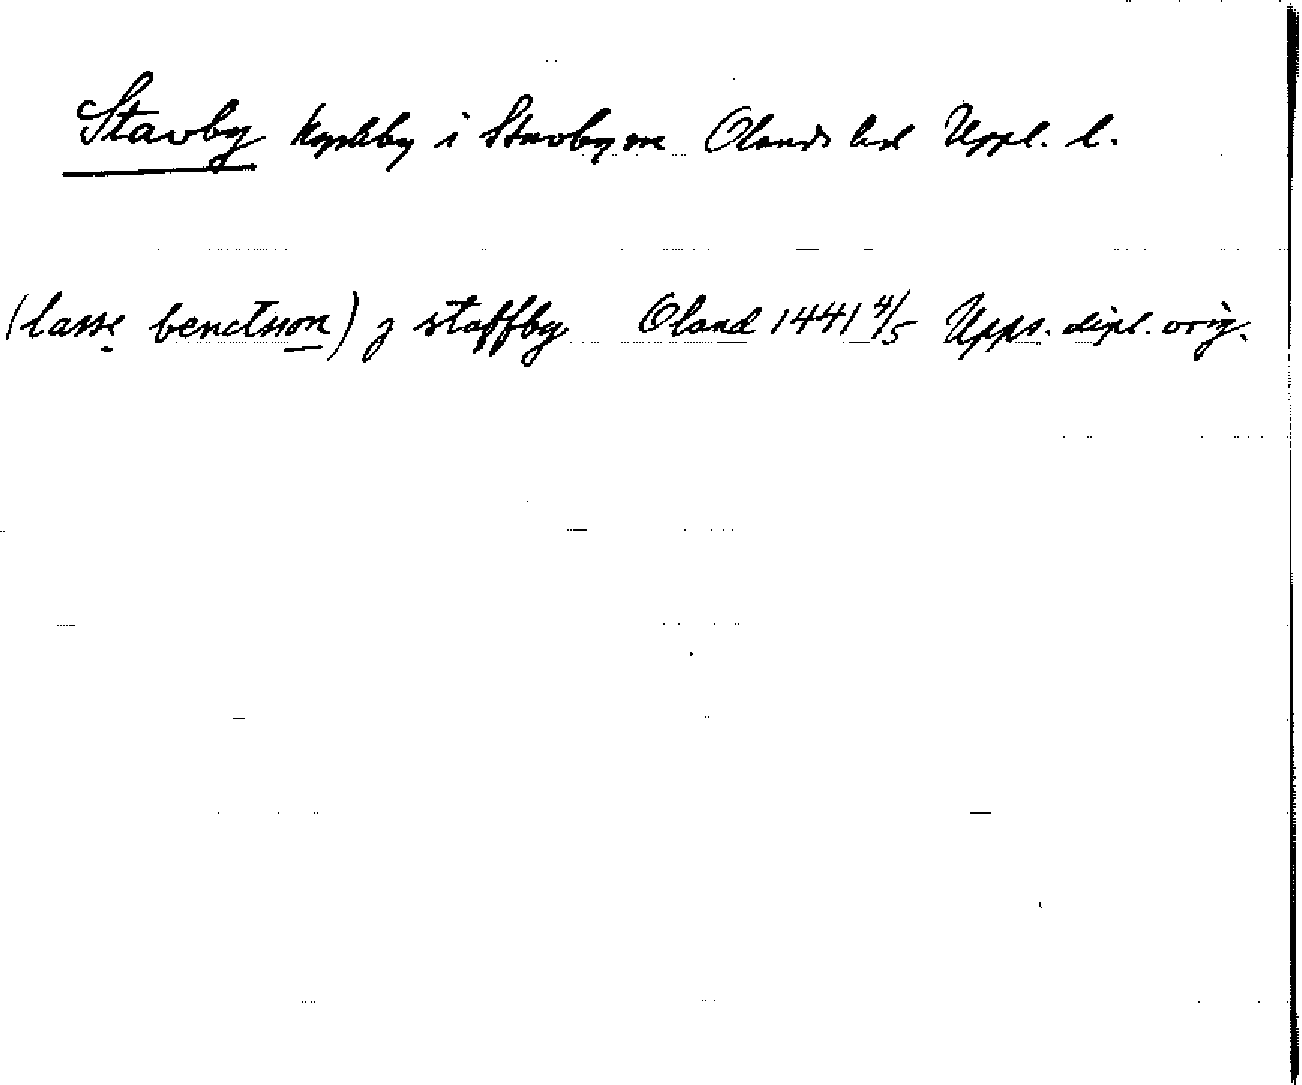 Stavby kyrkby i Stavby sn Olands hd Uppl. l.
(lasse benctsson) j staffby Oland 1441 4/5 Upps. dipl. orig.